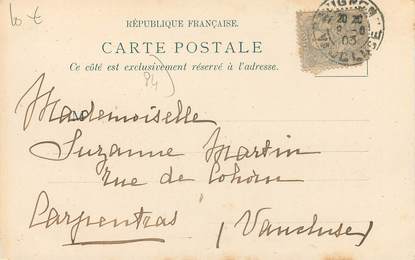 RÉPUBLIQUE FRANÇAISE.
CARTE POSTALE
Ce côté est exclusivement réservé à l'adresse.
Mademoiselle
Suzanne Martin
rue de
Carpentras (Vaucluse)